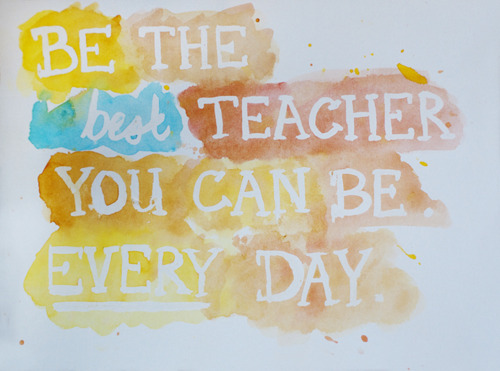 BE THE
best TEACHER
YOU CAN BE.
EVERY DAY.